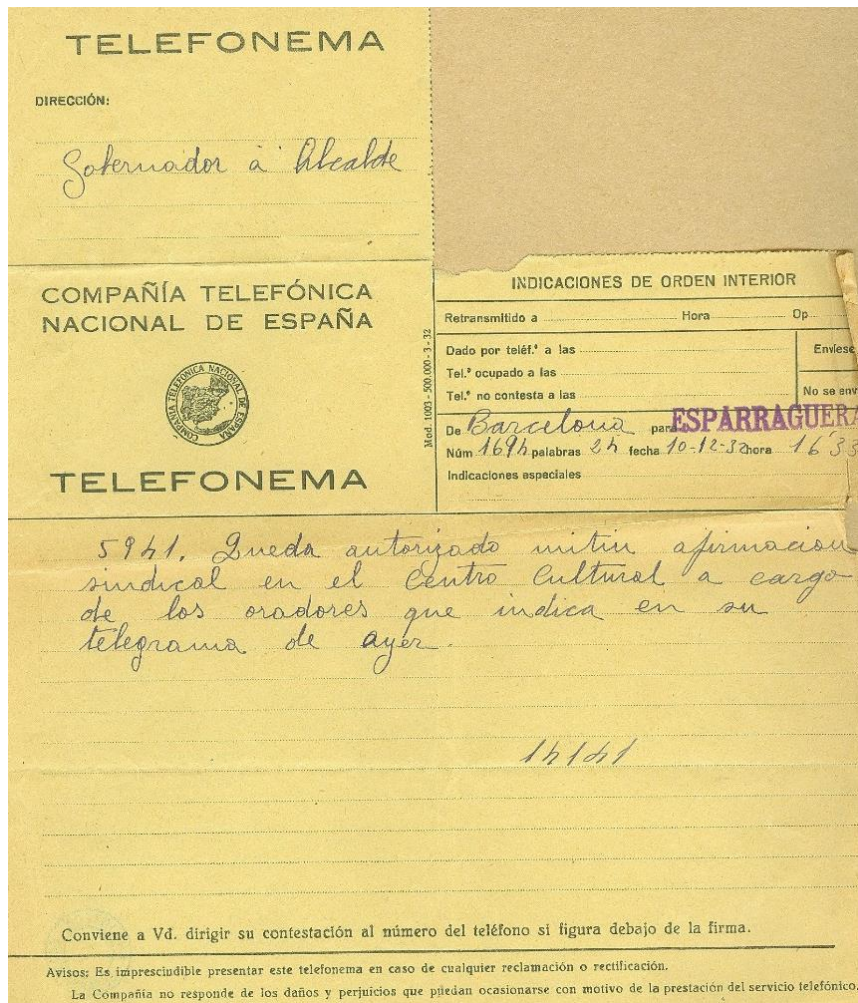 TELEFONEMA
DIRECCIÓN:
Gobernador a Alcalde
COMPAÑÍA TELEFÓNICA
NACIONAL DE ESPAÑA
COMPAÑIA TELEFONICA NACIONAL DE ESPAÑA
TELEFONEMA
Mod. 1003 - 500.000 - 3 - 32
INDICACIONES DE ORDEN INTERIOR
Retransmitido a Hora Op
Dado por teléf.º a las Envíese
Tel.º ocupado a las
Tel.º no contesta a las No se env
De Barcelona para ESPARRAGUERA
Núm 1694 palabras 24 fecha 10-12-32 hora 16'33
Indicaciones especiales
5941. Queda autorizado mitin afirmacion
sindical en el Centro Cultural a cargo
de los oradores que indica en su
telegrama de ayer.
14141
Conviene a Vd. dirigir su contestación al número del teléfono si figura debajo de la firma.
Avisos: Es imprescindible presentar este telefonema en caso de cualquier reclamación o rectificación.
La Compañía no responde de los daños y perjuicios que puedan ocasionarse con motivo de la prestación del servicio telefónico.